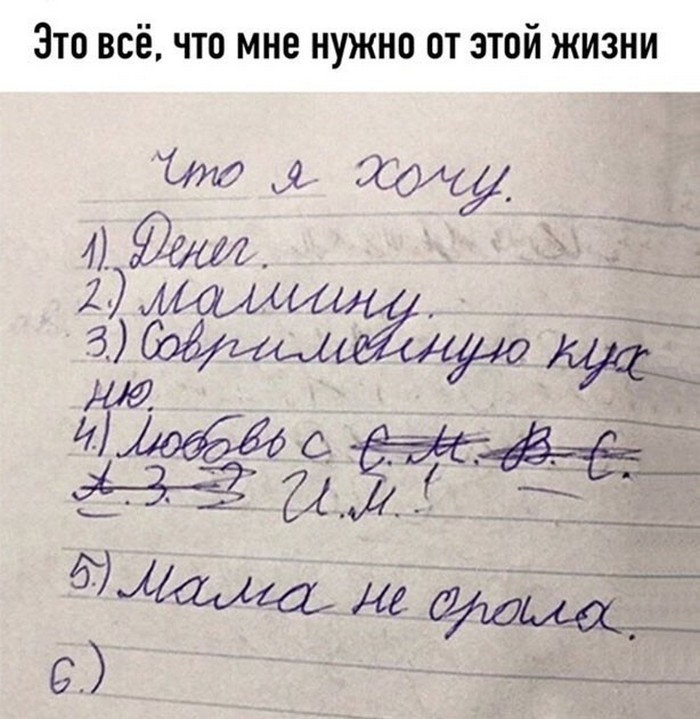 Это всё, что мне нужно от этой жизни
Что я хочу.
1) Денег.
2.) Машину.
3.) Соврименную кух
ню.
4.) Любовь с С. М. В. С.
А. З. З И.М.!
5.) Мама не орала.
6.)